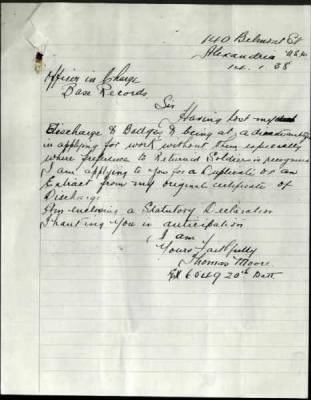 140 Belmont St
Alexandria NSW
14. 1. 38
Officer in Charge
Base Records
Sir Having lost my
Discharge & Badge & being at a disadvantage
in applying for work without them especially
where preference to Returned Soldiers is recognised
I am applying to you for a Duplicate or an
Extract from my original certificate of
Discharge
Am enclosing a Statutory Declaration
Thanking You in anticipation
I am
Yours faithfully
Thomas Moore
Ex 6049 20th Batt